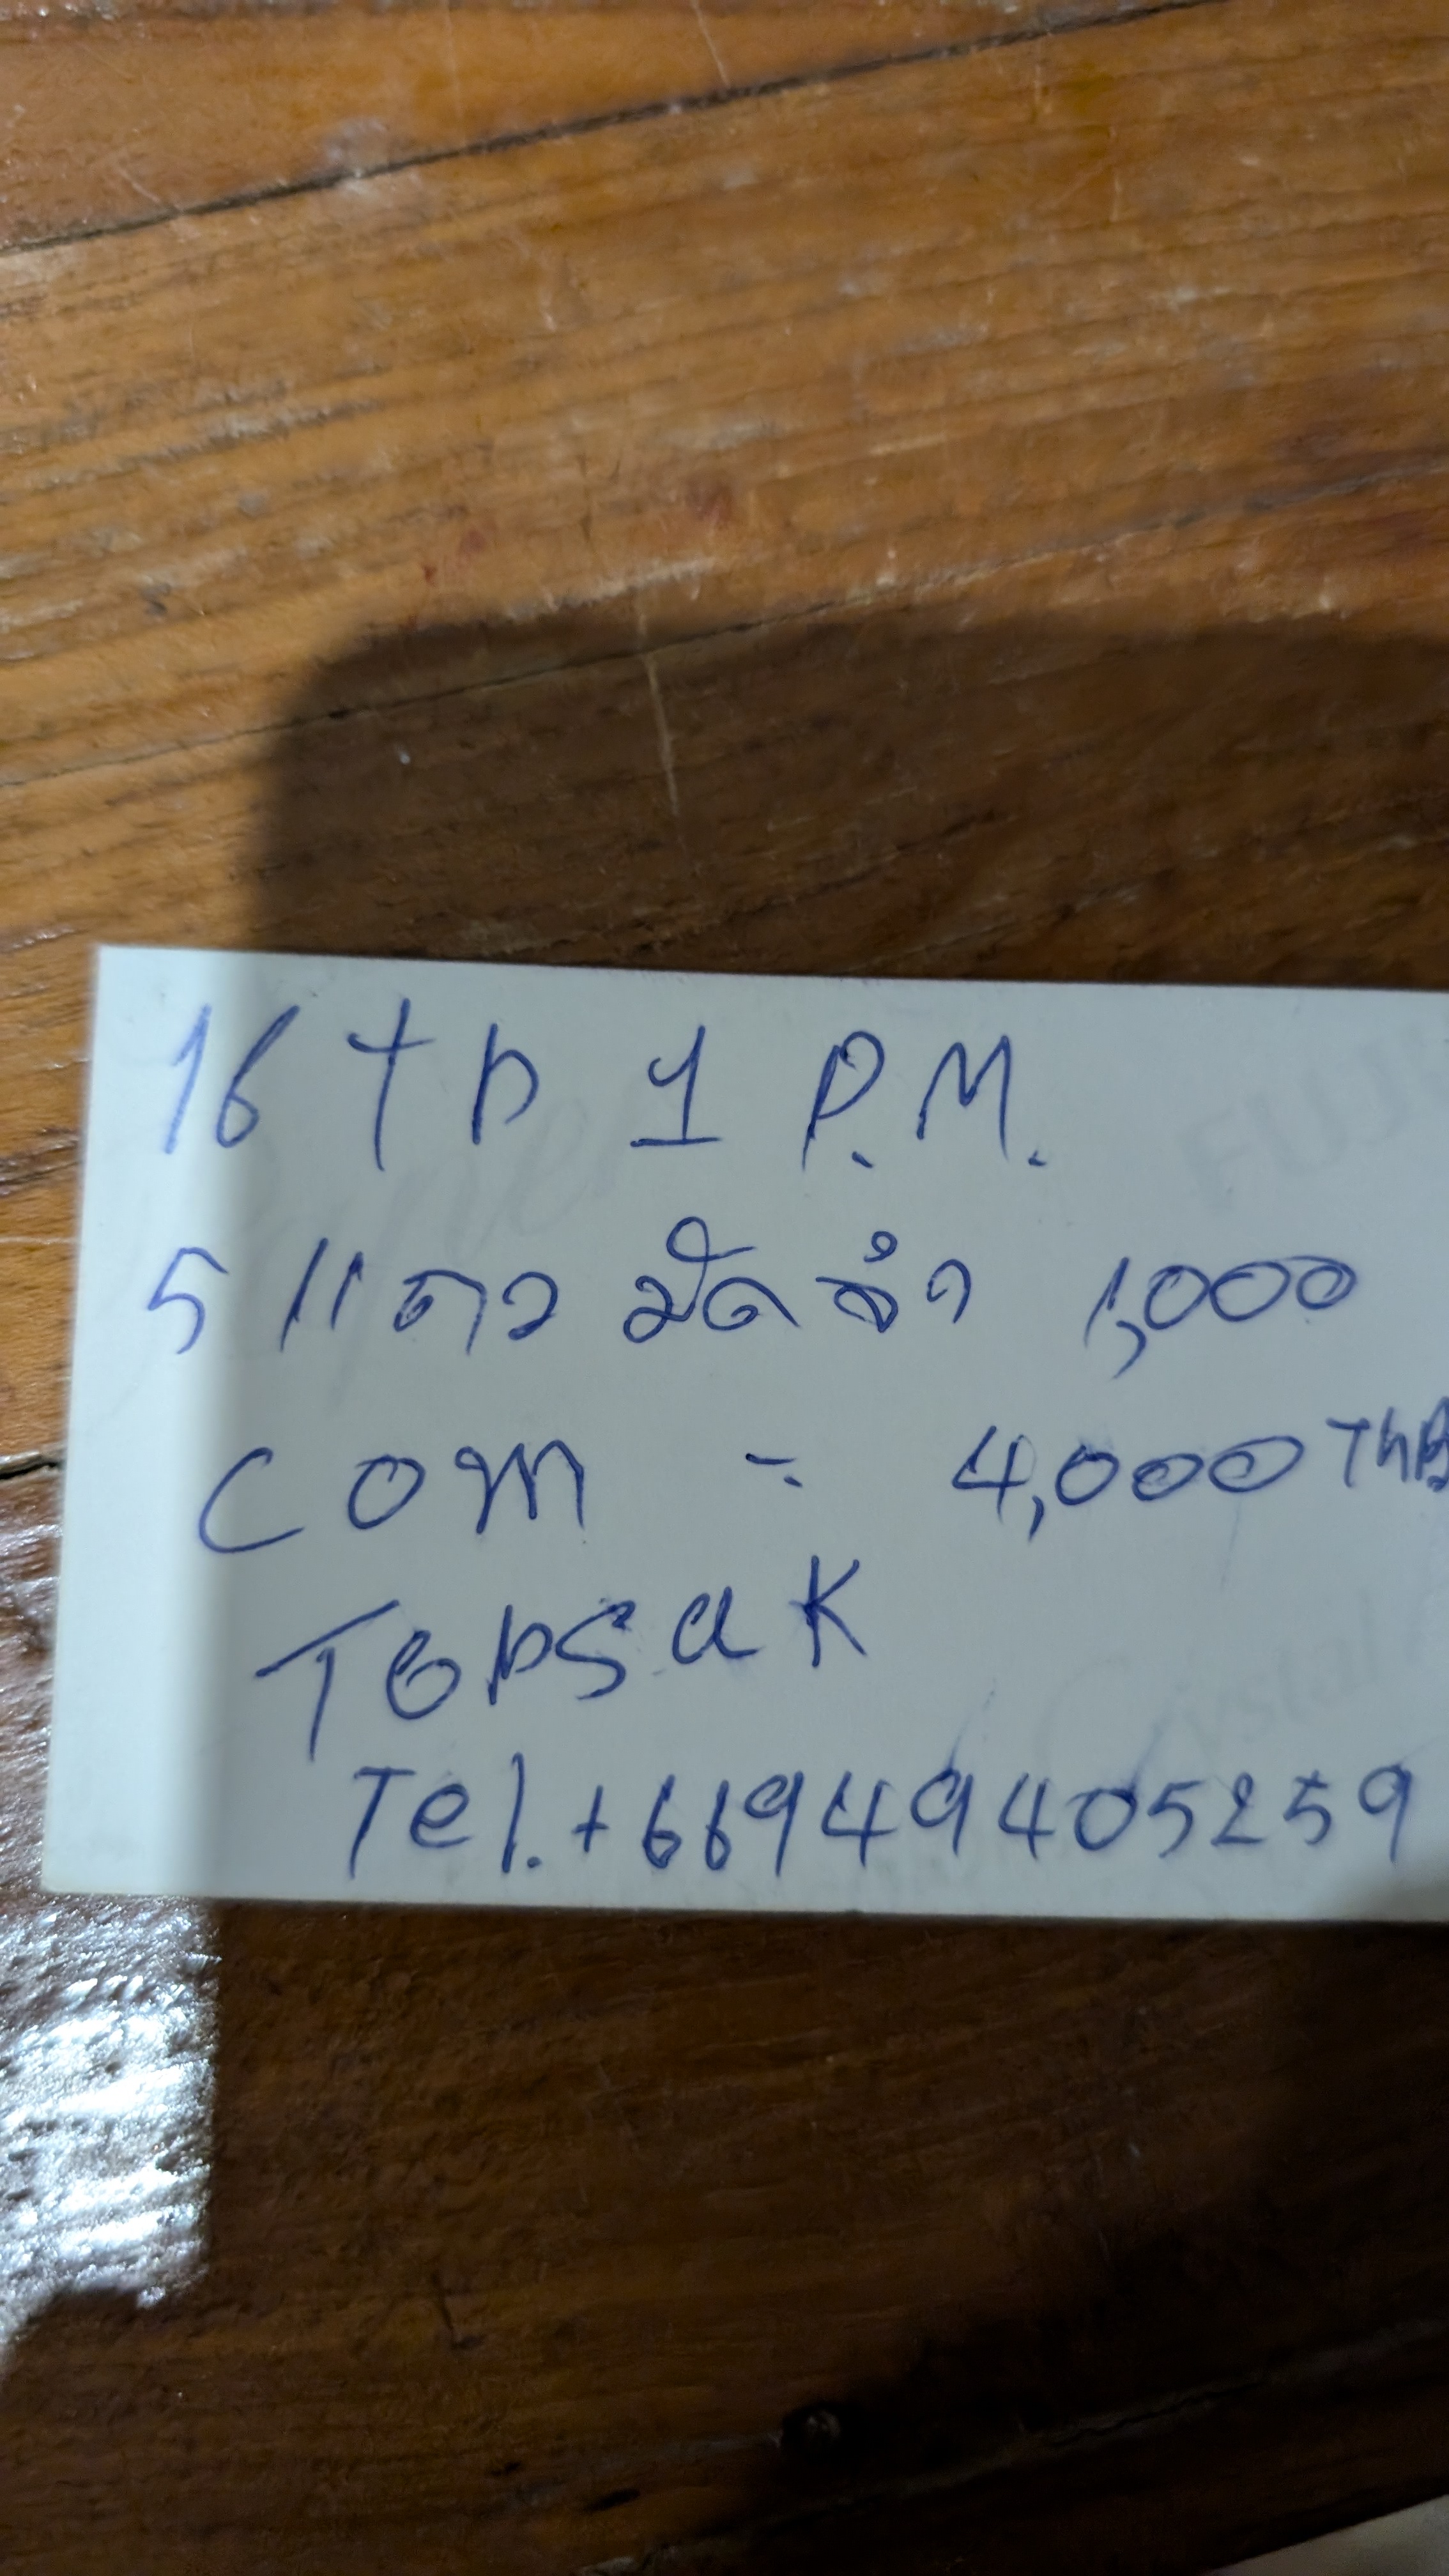 16 th 1 P.M.
5 แถว มัดจำ 1,000
COM - 4,000 THB
Tepsak
Tel. +66949405259